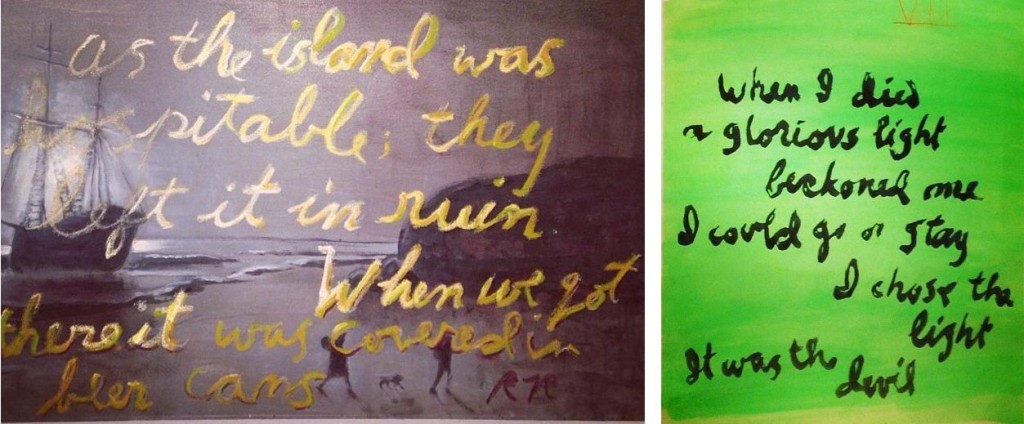 as the island was
hospitable; they
left it in ruin
When we got
there it was covered in
beer cans
RR
VII
When I died
a glorious light
beckoned me
I could go or stay
I chose the
light
It was the
devil